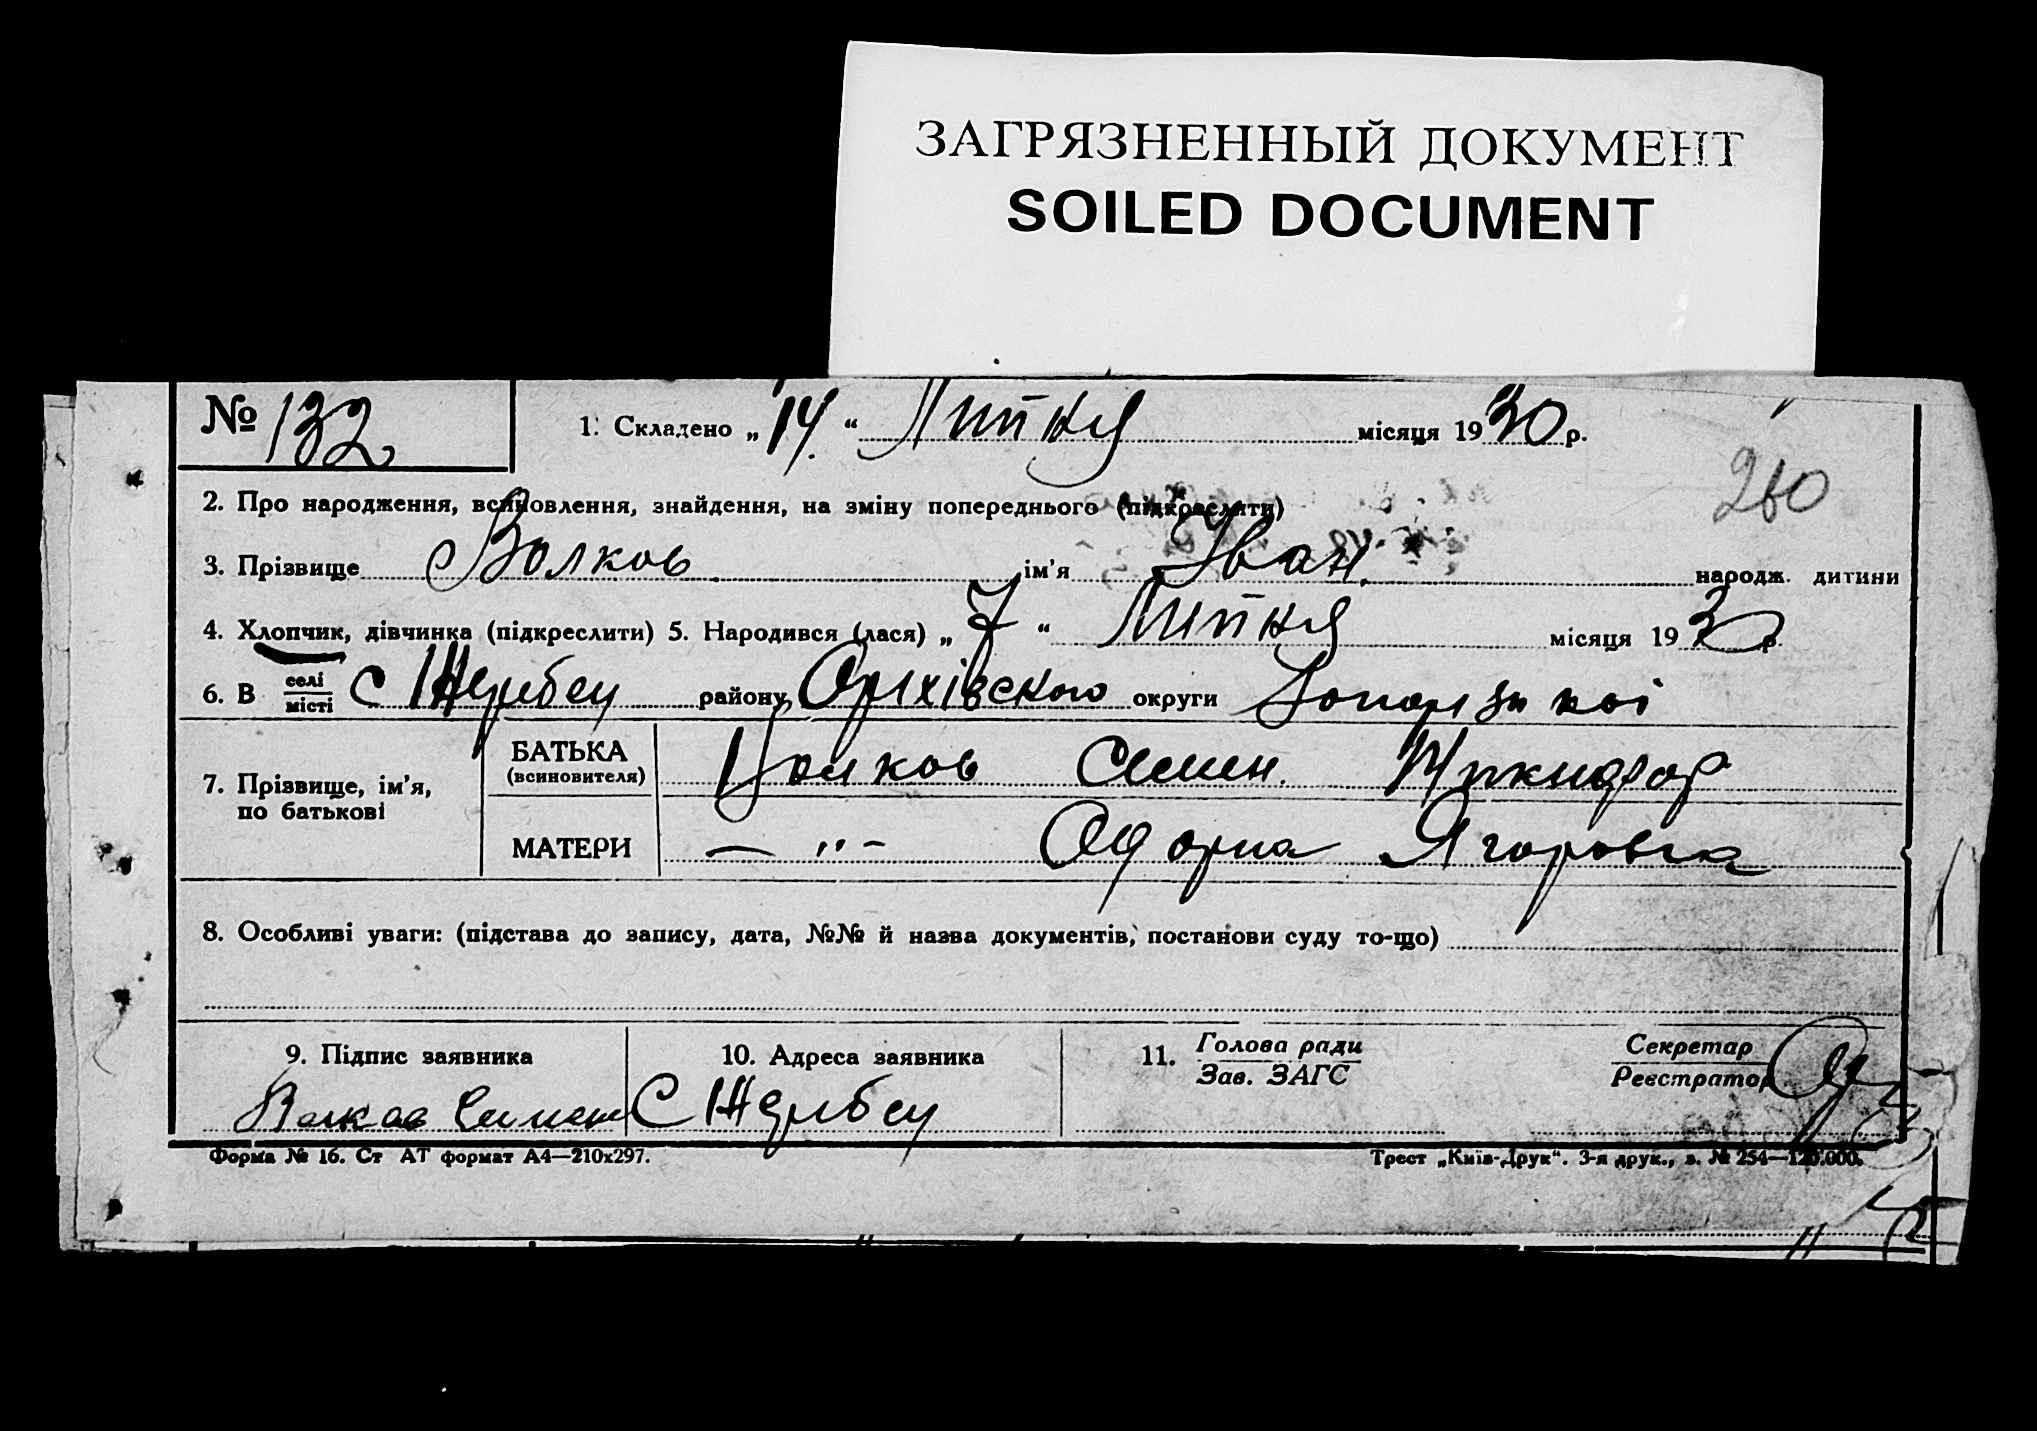 ЗАГРЯЗНЕННЫЙ ДОКУМЕНТ
SOILED DOCUMENT
№ 132
1. Складено „14“ Липня місяця 1930 р.
260
2. Про народження, всиновлення, знайдення, на зміну попереднього (підкреслити)
3. Прізвище Волков ім'я Іван народж. дитини
4. Хлопчик, дівчинка (підкреслити) 5. Народився (лася) „7“ Липня місяця 1930 р.
6. В селі місті с Жеребец району Оріхівского округи
7. Прізвище, ім'я, по батькові
БАТЬКА (всиновителя) Волков Семен
МАТЕРИ — „ – Ягоровна
8. Особливі уваги: (підстава до запису, дата, №№ й назва документів, постанови суду то-що)
9. Підпис заявника
10. Адреса заявника
11. Голова ради Зав. ЗАГС
Секретар Реєстратор
Волков Семен С Жеребец
Форма № 16. Ст АТ формат А4—210х297.
Трест „Київ-Друк“. 3-я друк., з. № 254—120.000.